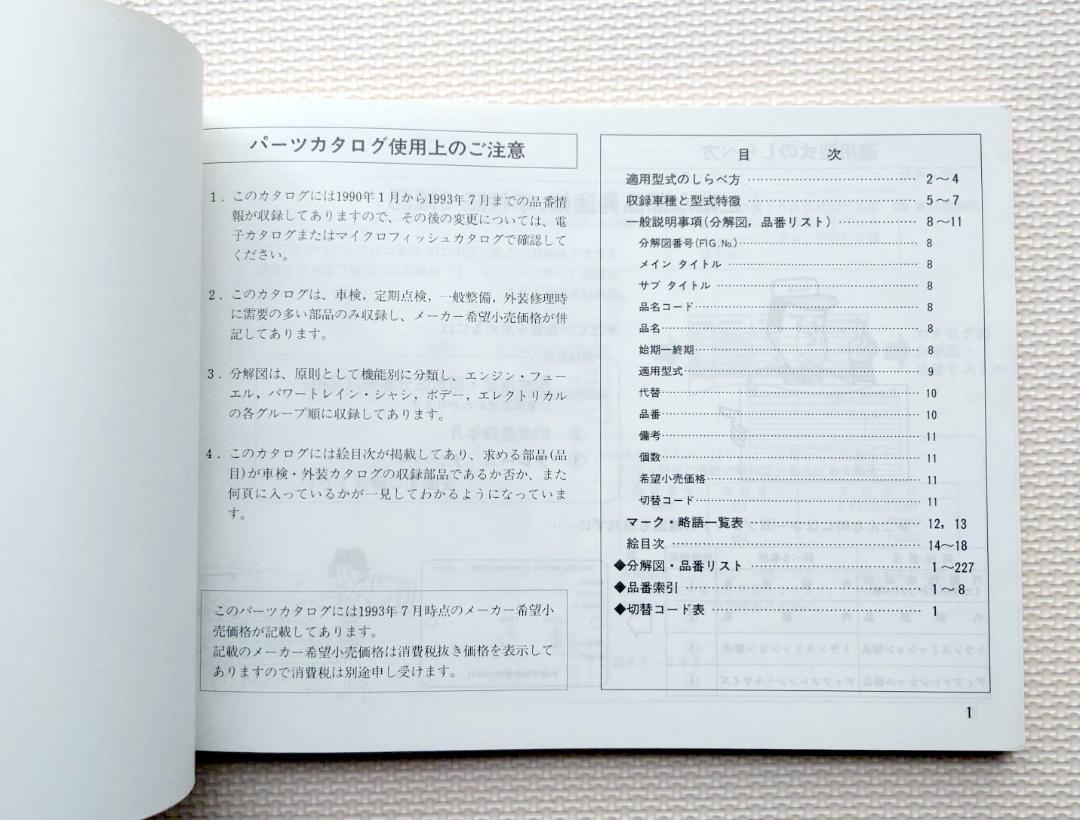 パーツカタログ使用上のご注意
1. このカタログには1990年1月から1993年7月までの品番情
報が収録してありますので、その後の変更については、電
子カタログまたはマイクロフィッシュカタログで確認して
ください。
2. このカタログは、車検，定期点検，一般整備，外装修理時
に需要の多い部品のみ収録し、メーカー希望小売価格が併
記してあります。
3. 分解図は、原則として機能別に分類し、エンジン・フュー
エル，パワートレイン・シャシ，ボデー，エレクトリカル
の各グループ順に収録してあります。
4. このカタログには絵目次が掲載してあり、求める部品(品
目)が車検・外装カタログの収録部品であるか否か、また
何頁に入っているかが一見してわかるようになっていま
す。
このパーツカタログには1993年7月時点のメーカー希望小
売価格が記載してあります。
記載のメーカー希望小売価格は消費税抜き価格を表示して
ありますので消費税は別途申し受けます。
目 次
適用型式のしらべ方 …… 2～4
収録車種と型式特徴 …… 5～7
一般説明事項(分解図，品番リスト) …… 8～11
分解図番号(FIG.No.) …… 8
メイン タイトル …… 8
サブ タイトル …… 8
品名コード …… 8
品名 …… 8
始期―終期 …… 8
適用型式 …… 9
代替 …… 10
品番 …… 10
備考 …… 11
個数 …… 11
希望小売価格 …… 11
切替コード …… 11
マーク・略語一覧表 …… 12，13
絵目次 …… 14～18
◆分解図・品番リスト …… 1～227
◆品番索引 …… 1～8
◆切替コード表 …… 1
1